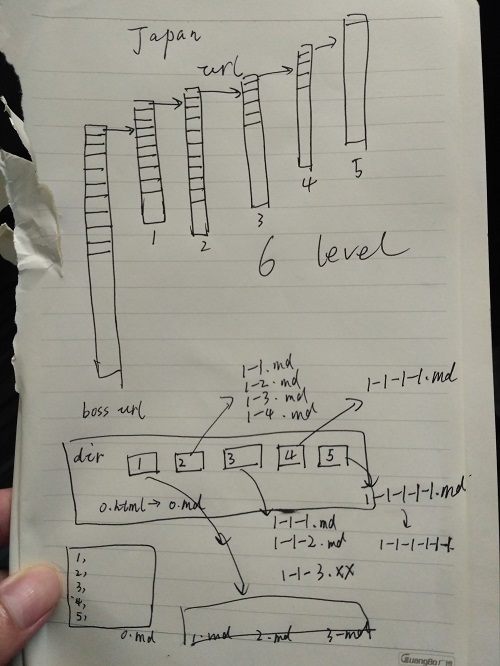 Japan
url
1
2
3
4
5
6 level
boss url
1-1.md
1-2.md
1-3.md
1-4.md
1-1-1-1.md
dir
1
2
3
4
5
0.html → 0.md
1-1-1-1-1.md
1-1-1-1-1-1
1-1-1.md
1-1-2.md
1-1-3.xx
1,
2,
3,
4,
5,
0.md
1.md 2.md 3.md
GuangBo 广博